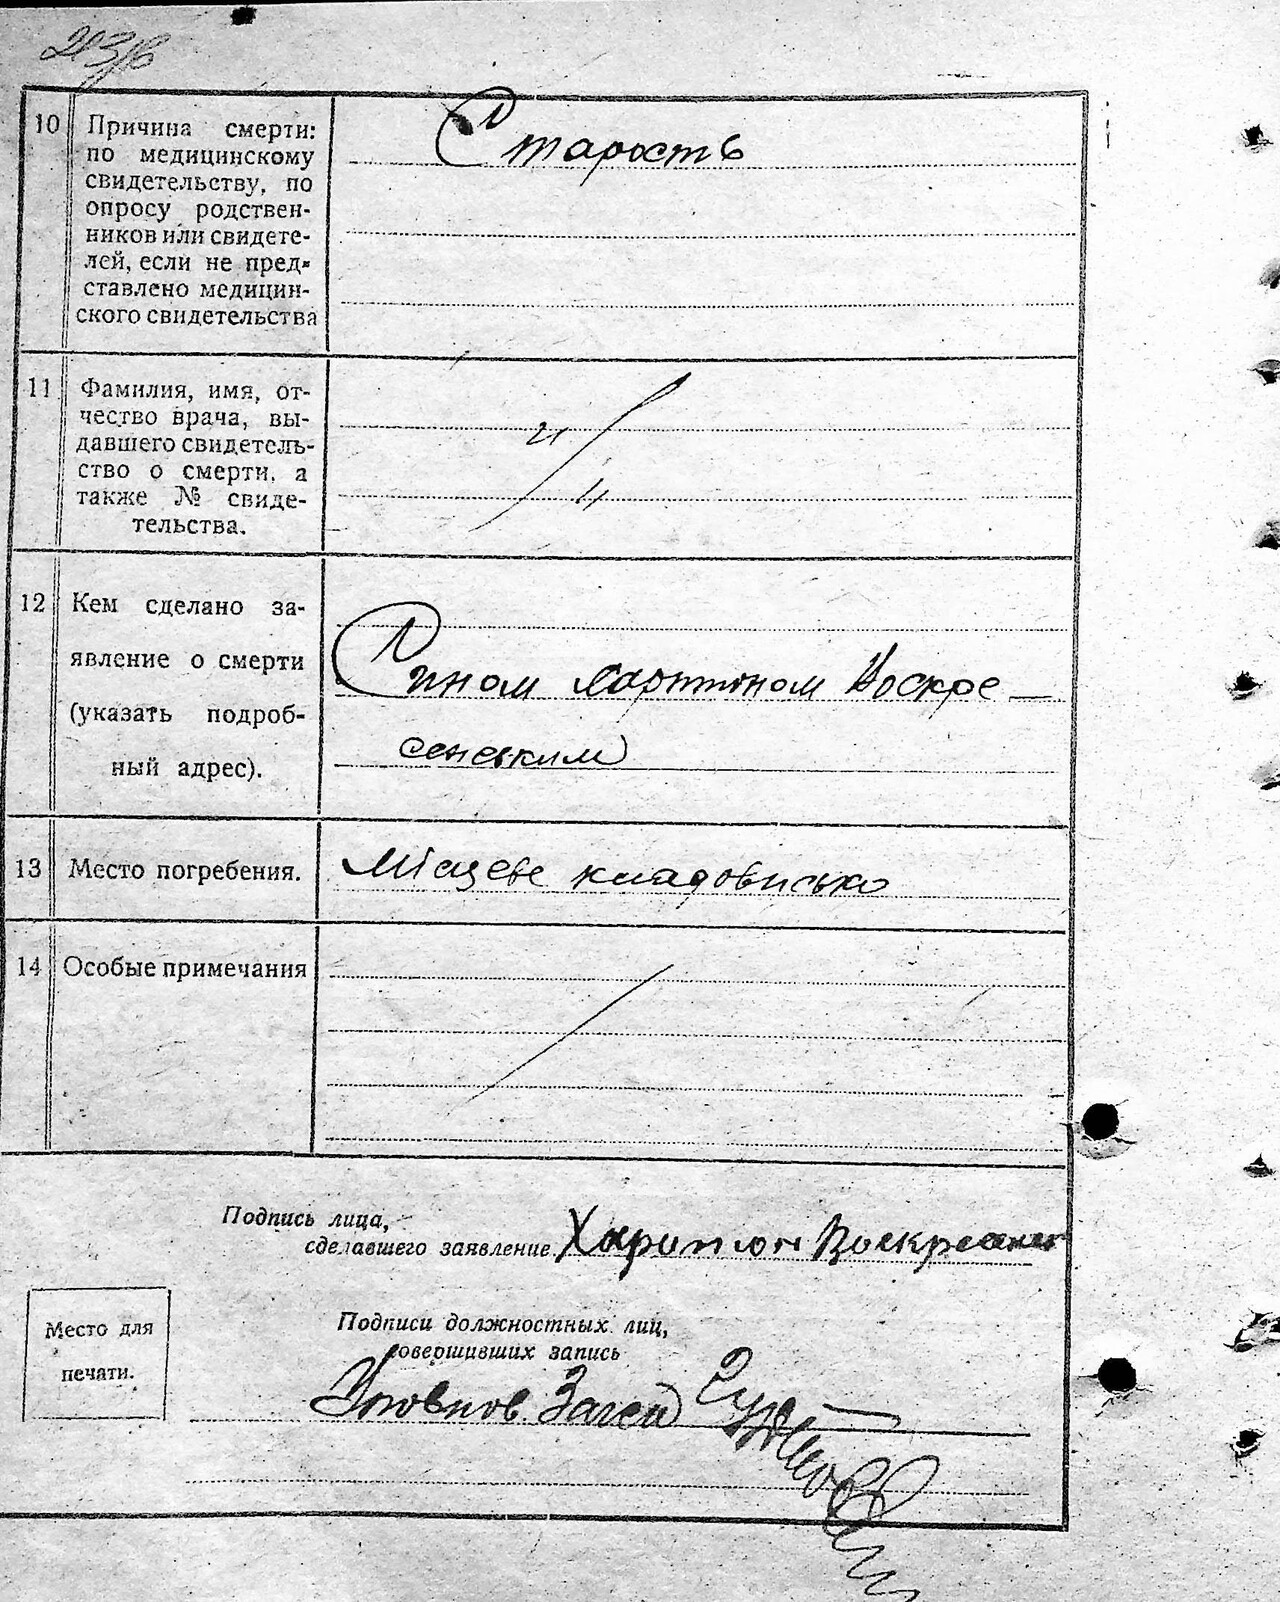 10 Причина смерти:
по медицинскому
свидетельству, по
опросу родствен-
ников или свидете-
лей, если не пред-
ставлено медицин-
ского свидетельства
Старость
11 Фамилия, имя, от-
чество врача, вы-
давшего свидетель-
ство о смерти, а
также № свиде-
тельства.
12 Кем сделано за-
явление о смерти
(указать подроб-
ный адрес).
Сином Харитоном Воскре-
сенським
13 Место погребения.
Місцеве кладовисько
14 Особые примечания
Подпись лица,
сделавшего заявление Харитон
Место для
печати.
Подписи должностных лиц,
совершивших запись
Уповнов. Загса